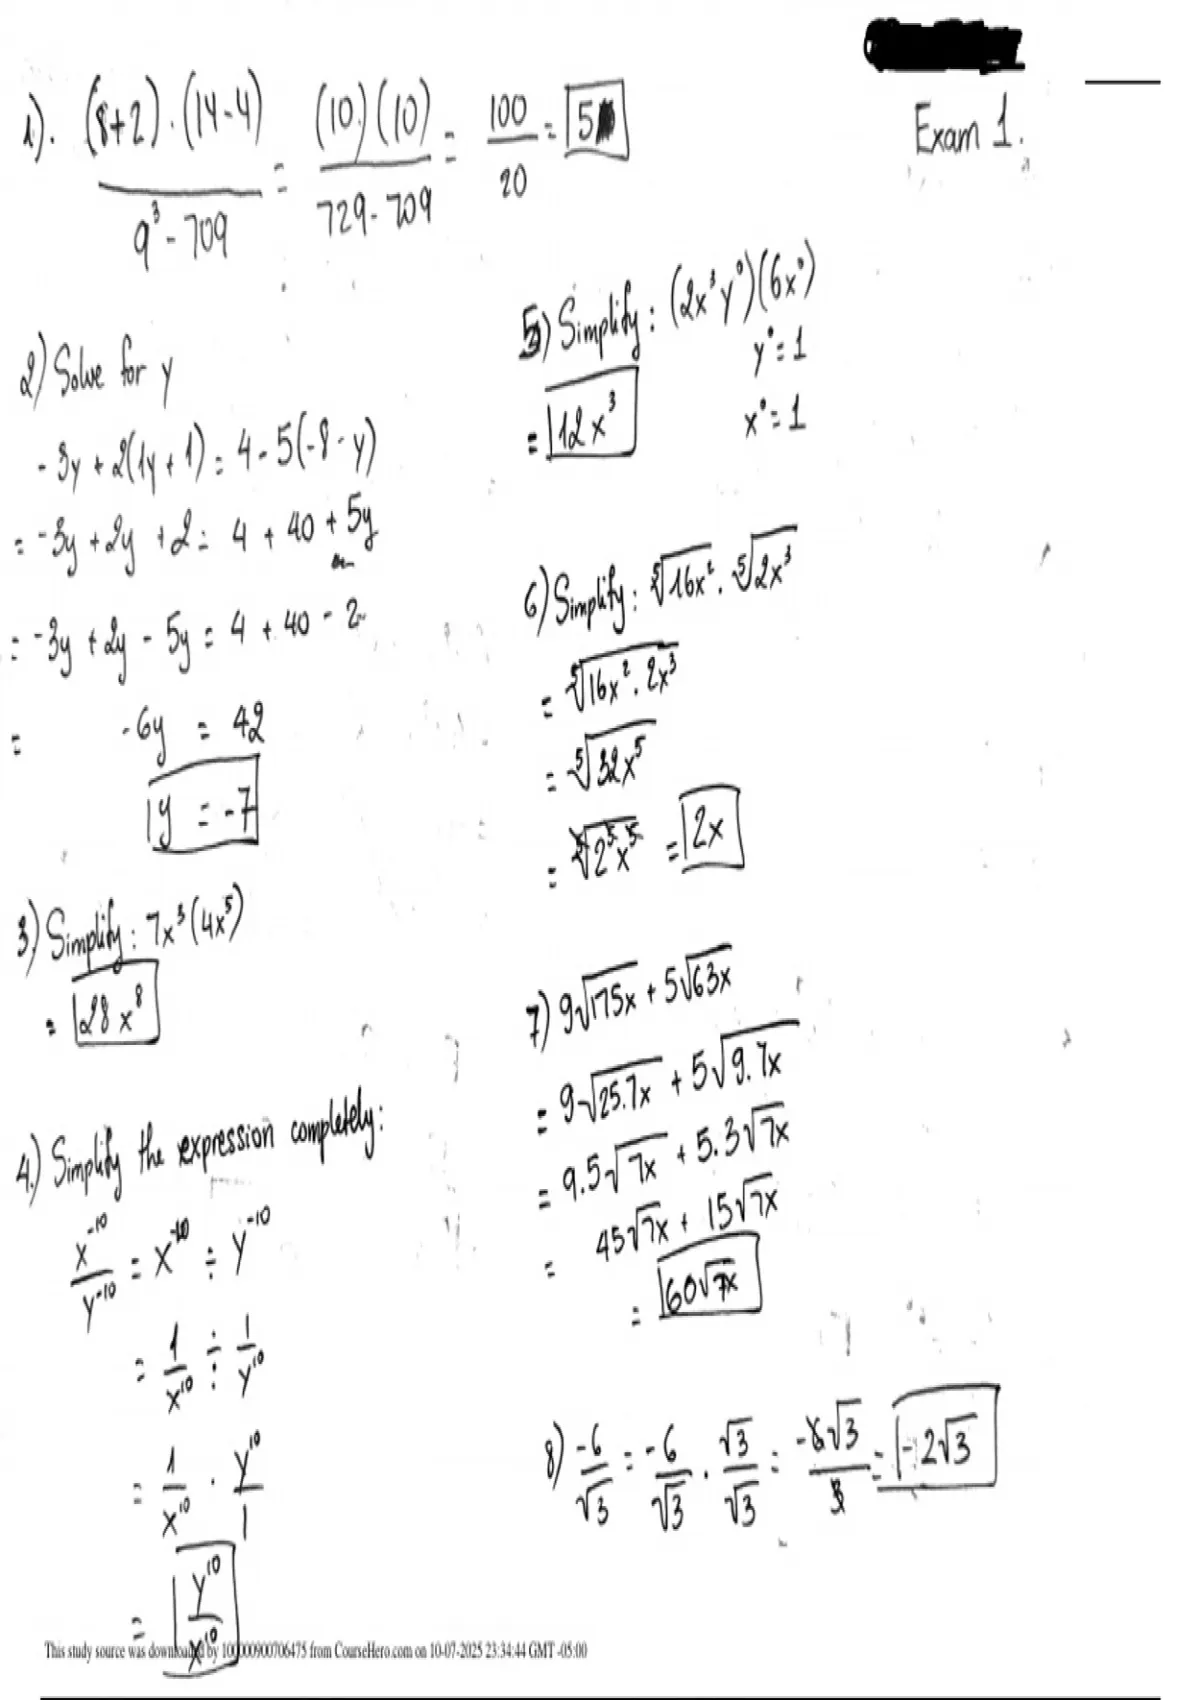 Exam 1.
1). (8+2).(14-4) / 9³ - 709 = (10)(10) / 729 - 709 = 100 / 20 = 5
2) Solve for y
-3y + 2(1y + 1) = 4 - 5(-8 - y)
= -3y + 2y + 2 = 4 + 40 + 5y
= -3y + 2y - 5y = 4 + 40 - 2
= -6y = 42
y = -7
3.) Simplify: 7x³(4x⁵)
= 28x⁸
4.) Simplify the expression completely:
x⁻¹⁰ / y⁻¹⁰ = x⁻¹⁰ ÷ y⁻¹⁰
= 1/x¹⁰ ÷ 1/y¹⁰
= 1/x¹⁰ · y¹⁰/1
= y¹⁰/x¹⁰
5) Simplify: (2x³y⁰)(6x⁰)
y⁰ = 1
= 12x³ x⁰ = 1
6) Simplify: ⁵√16x² . ⁵√2x³
= ⁵√16x² . 2x³
= ⁵√32x⁵
= ⁵√2⁵x⁵ = 2x
7) 9√175x + 5√63x
= 9√25.7x + 5√9.7x
= 9.5√7x + 5.3√7x
= 45√7x + 15√7x
= 60√7x
8) -6/√3 = -6/√3 . √3/√3 = -6√3/3 = -2√3
This study source was downloaded by 100000900706475 from CourseHero.com on 10-07-2025 23:34:44 GMT -05:00